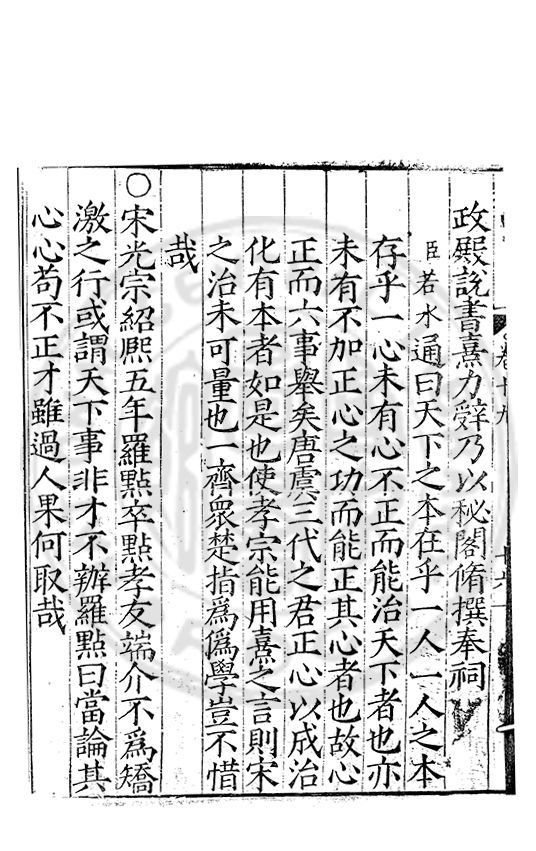 政殿說書熹力辭乃以秘閣脩撰奉祠
臣若水通曰天下之本在乎一人一人之本
存乎一心未有心不正而能治天下者也亦
未有不加正心之功而能正其心者也故心
正而六事舉矣唐虞三代之君正心以成治
化有本者如是也使孝宗能用熹之言則宋
之治未可量也一齊眾楚指為僞學豈不惜
哉
○宋光宗紹熙五年羅點卒點孝友端介不為矯
激之行或謂天下事非才不辦羅點曰當論其
心心苟不正才雖過人果何取哉